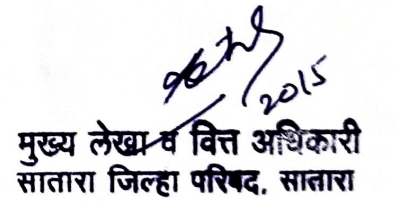 2015
मुख्य लेखा व वित्त अधिकारी
सातारा जिल्हा परिषद, सातारा